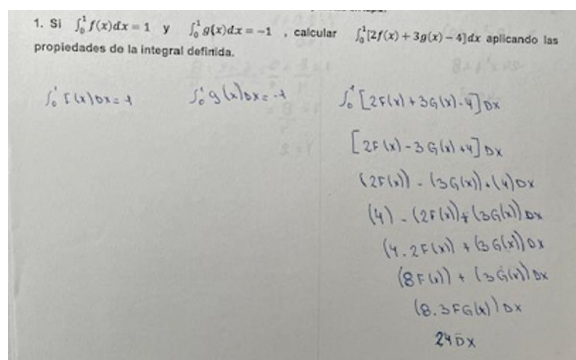 1. Si ∫₀¹ f(x)dx = 1 y ∫₀¹ g(x)dx = -1 , calcular ∫₀¹[2f(x) + 3g(x) - 4]dx aplicando las
propiedades de la integral definida.
∫₀¹ F(x)Dx = 1 ∫₀¹ g(x)Dx = -1 ∫₀¹ [2F(x) + 3G(x) - 4] Dx
[2F(x) - 3G(x) + 4] Dx
(2F(x)) - (3G(x)) + (4) Dx
(4) - (2F(x)) + (3G(x)) Dx
(4.2F(x)) + (3G(x)) Dx
(8F(x)) + (3G(x)) Dx
(8.3FG(x)) Dx
24Dx